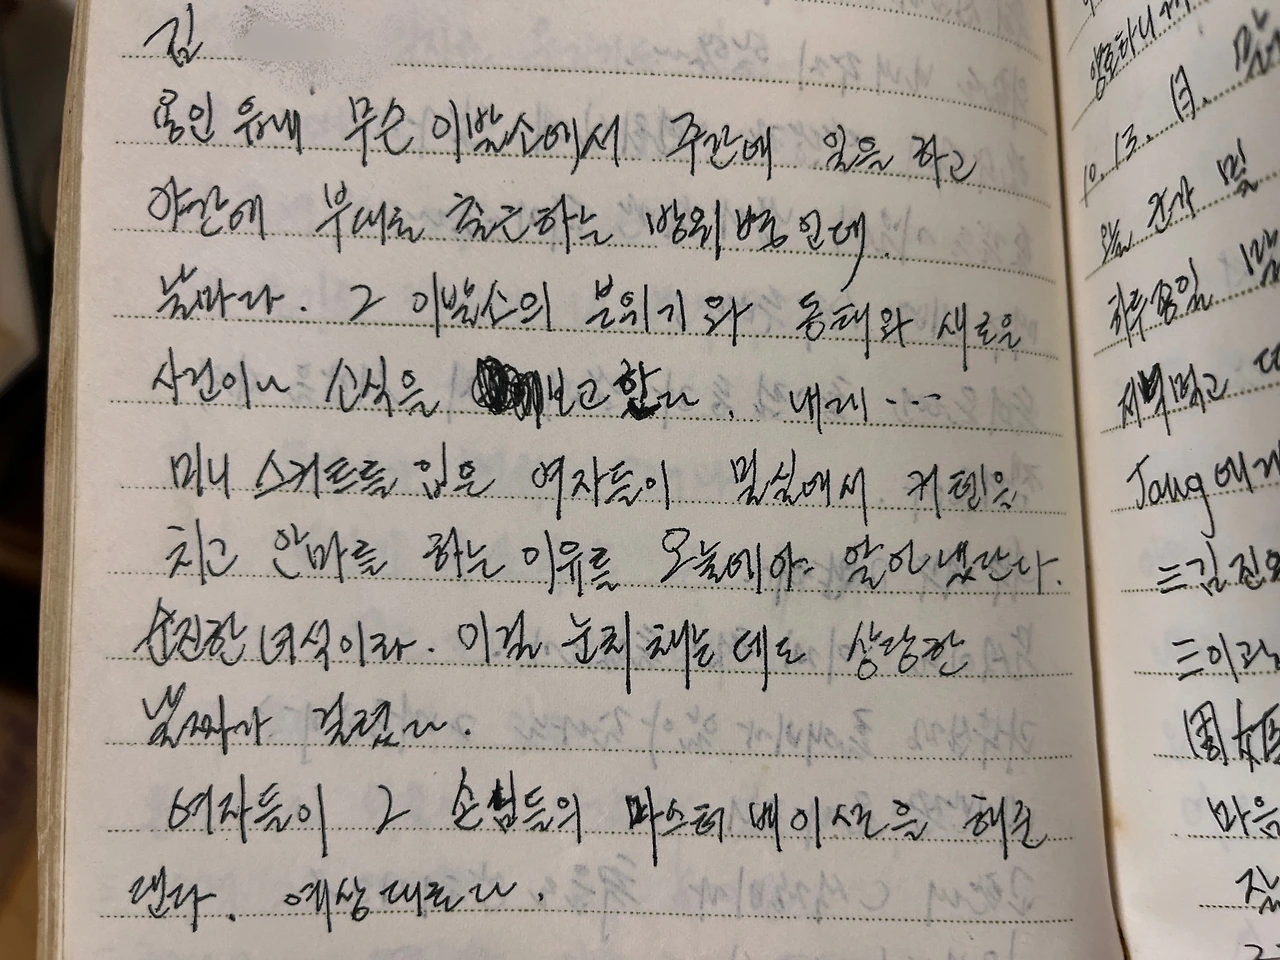 김
용인 무슨 이발소에서 주간에 일을 하고
야간에 부대로 출근하는 방위병인데,
날마다. 그 이발소의 분위기와 동태와 새로운
사건이나 소식을 보고한다. 내레...
미니 스커트를 입은 여자들이 밀실에서 커텐을
치고 안마를 하는 이유를 오늘에야 알아냈단다.
순진한 녀석이라. 이걸 눈치채는데도 상당한
날짜가 걸렸다.
여자들이 그 손님들의 마스터베이션을 해준
댄다. 예상대로다.
영호하니까
10. 13. 月.
오늘
하루종일
저녁먹고
Jang에게
三김진
三이
周
마음